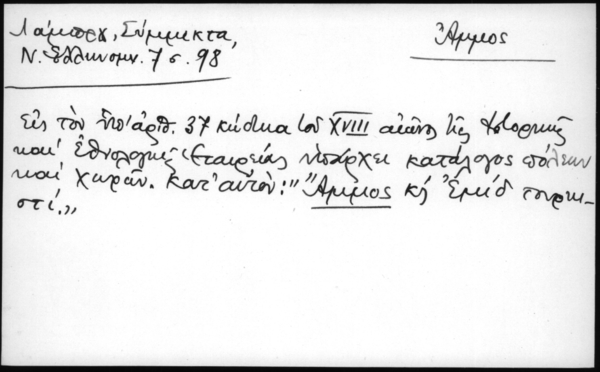 Λάμπρου, Σύμμεικτα,
Ν. Ἑλληνομν. 7 σ. 98
Ἄμμος
Εἰς τὸν ὑπ' ἀριθ. 37 κώδικα τοῦ XVIII αἰῶνος τῆς Ἱστορικῆς
καὶ Ἐθνολογικῆς Ἑταιρείας ὑπάρχει κατάλογος πόλεων
καὶ χωρῶν. Κατ' αὐτόν: "Ἄμμος κὴ Ἐμὶδ τουρκι-
στί."